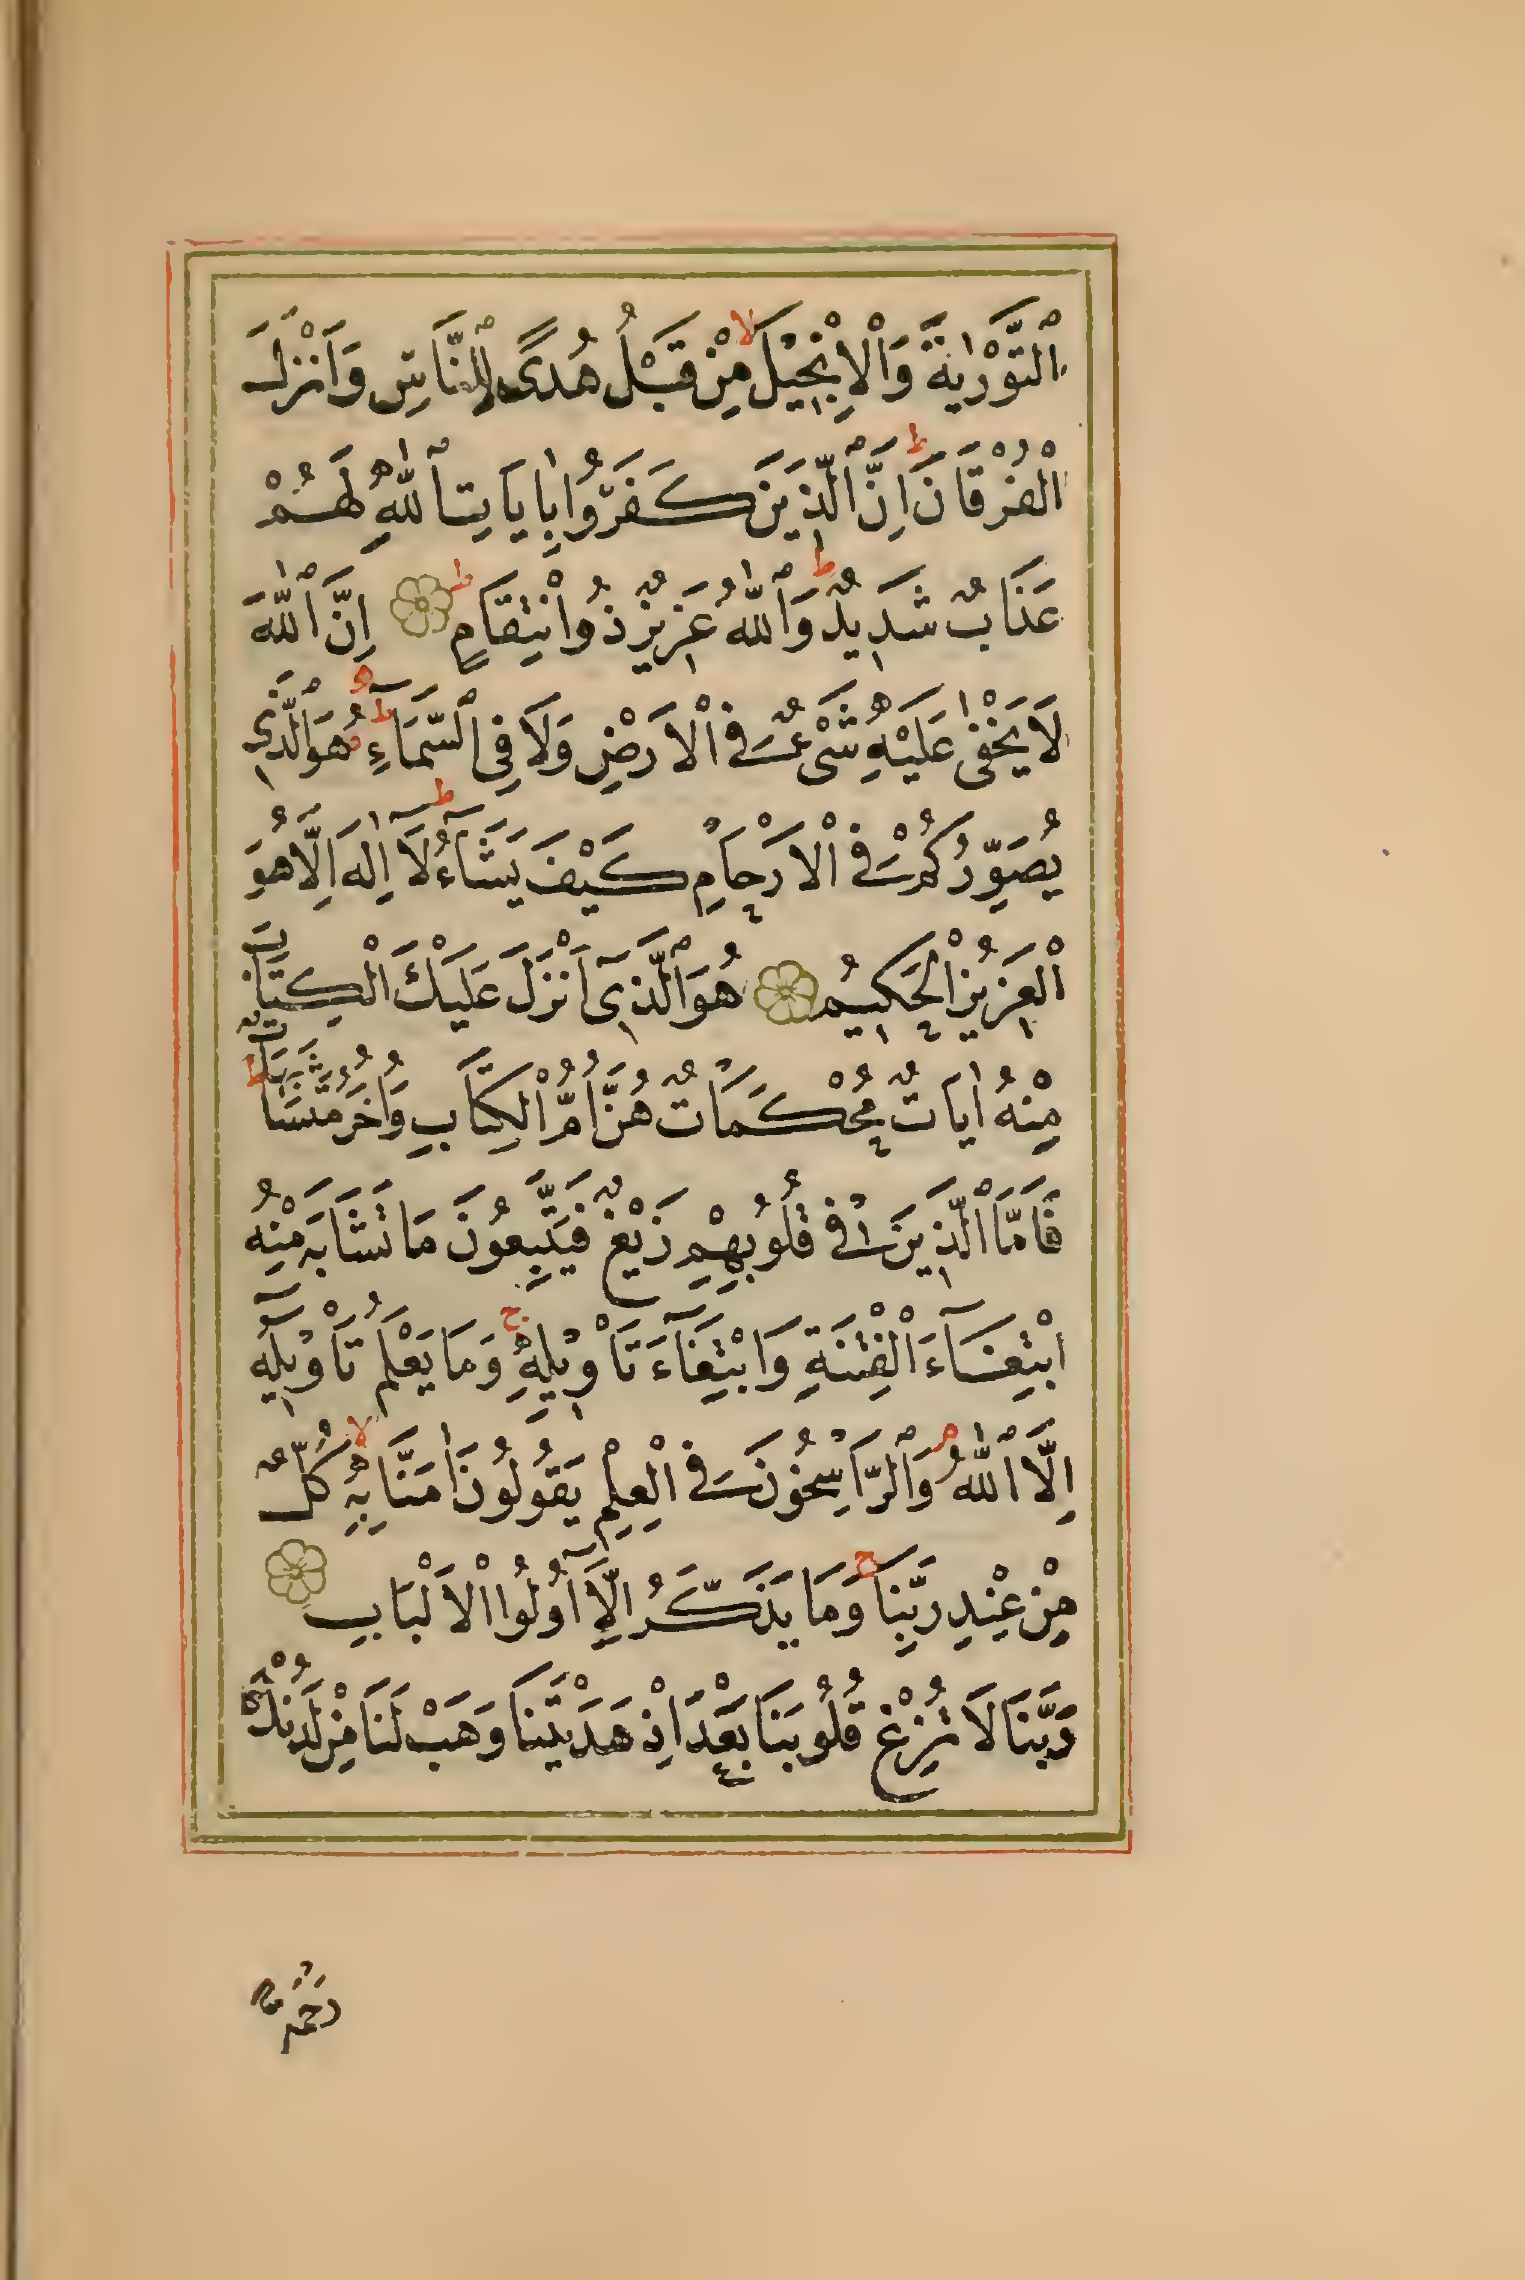 اَلتَّوْرٰيةَ وَالْاِنْجٖيلَ لا مِنْ قَبْلُ هُدًى لِلنَّاسِ وَاَنْزَلَ
الْفُرْقَانَ ط اِنَّ الَّذٖينَ كَفَرُوا بِاٰيَاتِ اللّٰهِ لَهُمْ
عَذَابٌ شَدٖيدٌ ط وَاللّٰهُ عَزٖيزٌ ذُو انْتِقَامٍ ط اِنَّ اللّٰهَ
لَا يَخْفٰى عَلَيْهِ شَىْءٌ فِى الْاَرْضِ وَلَا فِى السَّمَآءِ ط هُوَ الَّذٖى
يُصَوِّرُكُمْ فِى الْاَرْحَامِ كَيْفَ يَشَآءُ ط لَآ اِلٰهَ اِلَّا هُوَ
الْعَزٖيزُ الْحَكٖيمُ هُوَ الَّذٖىٓ اَنْزَلَ عَلَيْكَ الْكِتَابَ
مِنْهُ اٰيَاتٌ مُحْكَمَاتٌ هُنَّ اُمُّ الْكِتَابِ وَاُخَرُ مُتَشَابِهَاتٌ ط
فَاَمَّا الَّذٖينَ فٖى قُلُوبِهِمْ زَيْغٌ فَيَتَّبِعُونَ مَا تَشَابَهَ مِنْهُ
ابْتِغَآءَ الْفِتْنَةِ وَابْتِغَآءَ تَاْوٖيلِهٖ ج وَمَا يَعْلَمُ تَاْوٖيلَهُٓ
اِلَّا اللّٰهُ م وَالرَّاسِخُونَ فِى الْعِلْمِ يَقُولُونَ اٰمَنَّا بِهٖ لا كُلٌّ
مِنْ عِنْدِ رَبِّنَا ج وَمَا يَذَّكَّرُ اِلَّآ اُولُوا الْاَلْبَابِ
رَبَّنَا لَا تُزِغْ قُلُوبَنَا بَعْدَ اِذْ هَدَيْتَنَا وَهَبْ لَنَا مِنْ لَدُنْكَ
رَحْمَةً